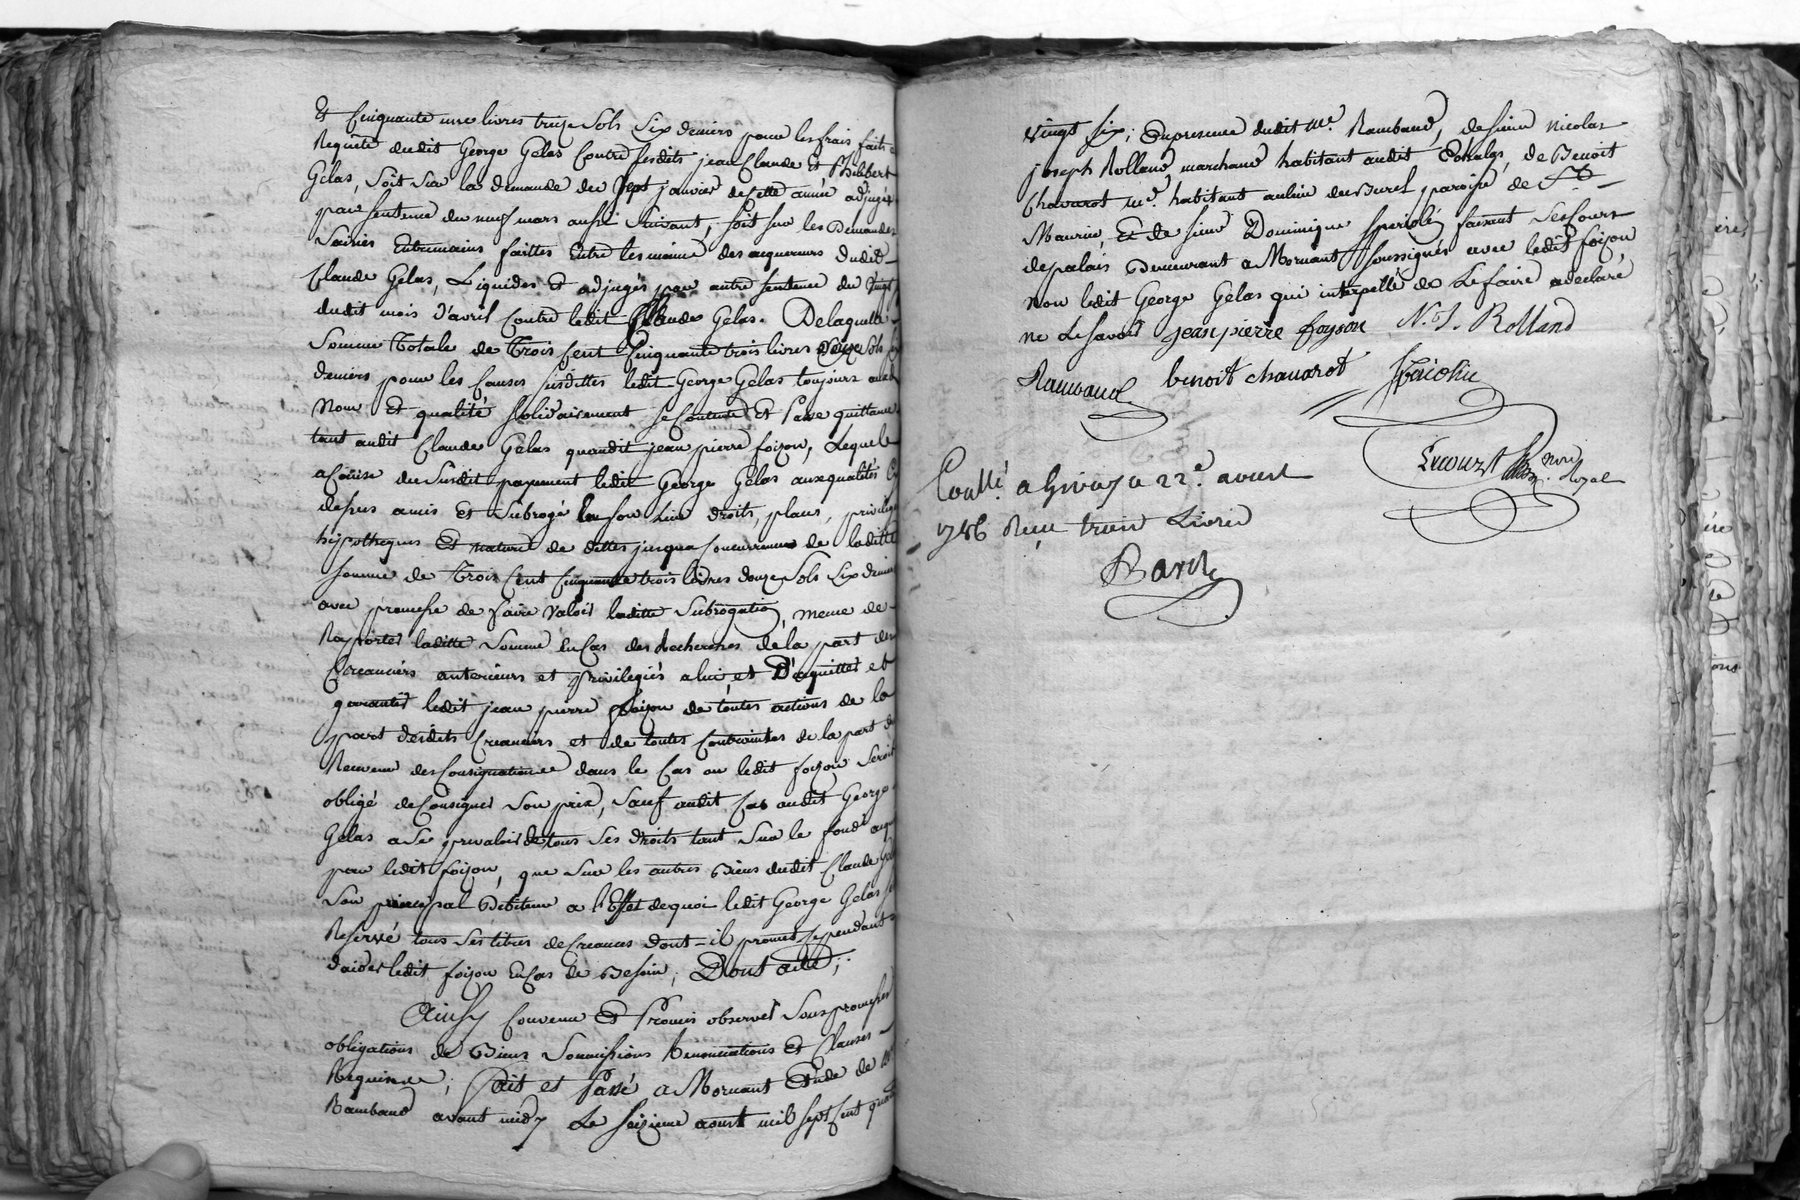 Et Cinquante une livres treize Sols Six deniers pour les frais faits a
Requête dudit George Gelas Contre lesdits jean Claude Et Philibert
Gelas, Soit Sur la demande du Sept janvier de cette année adjugés
par Sentence du neuf mars aussi Suivant, soit sur les Demandes
Saisies Entremains faittes Entre les mains des acquereurs dudit
Claude Gelas, Liquidés Et adjugés par autre Sentence du Vingt
dudit mois d'avril Contre ledit Claude Gelas. De laquelle
Somme Totale de Trois Cent Cinquante trois livres douze Sols Six
deniers pour les Causes susdittes ledit George Gelas toujours auxdits
Nom Et qualité Solidairement se Contente Et Passe quittance
tant audit Claude Gelas quaudit jean pierre foizon, Lequel
a Cause du Susdit payement ledit George Gelas auxqualités Cy
dessus a mis Et Subrogé En son Lieu droits, place, privileges
hipotheques Et nature de dettes jusqua Concurrence de laditte
somme de Trois Cent Cinquante trois livres douze Sols Six deniers
avec promesse de faire Valoir laditte Subrogation, meme de
Raporter laditte Somme En Cas des Recherches de la part des
Creanciers anterieurs et privilegiés a lui et D'aquitter et
garantir ledit jean pierre foizon de toutes actions de la
part desdits Creanciers et de toutes Contraintes de la part du
Receveur des Consignations dans le Cas ou ledit foizon Seroit
obligé de Consigner Son prix, Sauf audit Cas audit George
Gelas a Se prevaloir de tous Ses droits tant Sur le fond acquis
par ledit foizon, que Sur les autres Biens dudit Claude Gelas
Son principal Debiteur a l'Effet de quoi ledit George Gelas se
Reservé tous Ses titres de Creances dont il promet Cependant
d'aider ledit foizon En Cas de Besoin; Dont acte;
Ainsy Convenu Et Promis observer Sous promesses
obligations de Biens Soumissions Renonciations Et Clauses
Requises; fait et Passé a Mornant Etude de Me
Rambaud avant midy Le Seizieme aoust mil Sept Cent quatre
vingt Six; En presence dudit Me. Rambaud, de Sieur Nicolas
joseph Rolland marchand habitant audit Echalas, de Benoit
Chavarot md. habitant au lieu du Burel paroisse de St
Maurice, Et de Sieur Dominique Spericolis suivant Ses Cours
de palais Demeurant a Mornant Soussignés avec ledit foizon
non ledit George Gelas qui interpellé de Le faire a declaré
ne Le Savoir jean pierre foyson N. J. Rolland
Rambaud benoit chavarot
Lecourt Not. Royal
Conttlé. a Givors 22e. aoust
1786 Reçu treize Livres